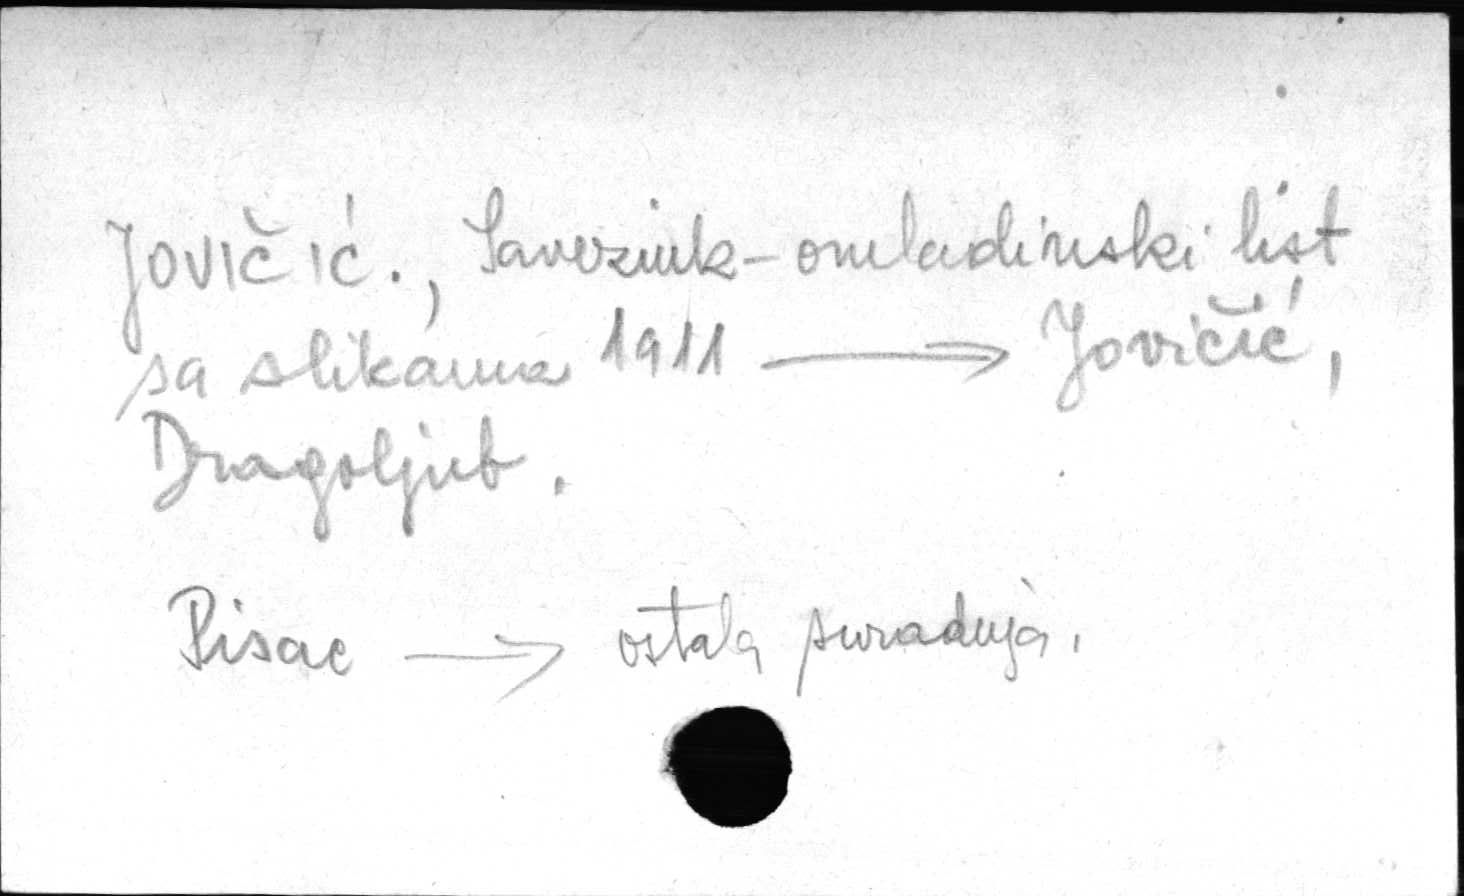 Jovičić., Saveznik-omladinski list
sa slikama 1911 → Jovičić,
Dragoljub.
Pisac → ostala suradnja.